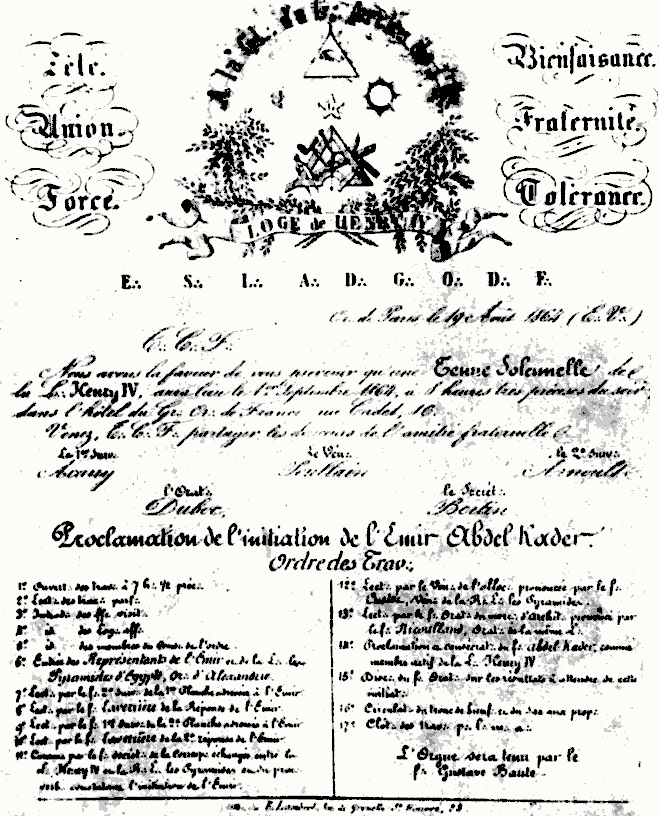 A la Gl. du Gr. Arch. de l'U.
Zèle.
Union.
Force.
Bienfaisance.
Fraternité.
Tolérance.
LOGE de HENRI IV
E∴ S∴ L∴ A∴ D∴ G∴ O∴ D∴ F∴
Or. de Paris, le 19 Août 1864 (E∴ V∴)
T∴ C∴ F∴
Nous avons la faveur de vous prévenir qu'une Tenue Solennelle de
la L∴ Henry IV, aura lieu le 1er Septembre 1864, à 8 heures très précises du soir,
dans l'hôtel du Gr∴ Or∴ de France rue Cadet, 16.
Venez, T∴ C∴ F∴ partager les douceurs de l'amitié fraternelle
Le 1er Surv∴ Le Vén∴ le 2e Surv∴
Arnoult
l'Orat∴ le Secrét∴
Duboc, Bertin
Proclamation de l'initiation de l'Emir Abdel Kader.
Ordre des Trav∴
1° Ouvert. des trav. à 7 h. 1/2 préc.
2° Lect. des trav. parf.
3° Introd. des ff. visit.
4° id des Log. aff.
5° id des membres du de l'ordre.
6° Entrée des Représentants de l'Emir et de la L. les
Pyramides d'Egypte, Or. d'Alexandrie.
7° Lect. par le f. 2e Surv. de la 1re Planche adressée à l'Emir
8° Lect. par le f. Laverrière de la Réponse de l'Emir.
9° Lect. par le f. 1er Surv. de la 2e Planche adressée à l'Emir
10° Lect. par le f. Laverrière de la 2e réponse de l'Emir
11° par le f. secrét. de la Corresp. échangée entre la
L. Henry IV et la R. L. les Pyramides et du proc.
verb. constatant l'initiation de l'Emir.
12° Lect. par le Vén. de l'alloc. prononcée par le f.
Vén. de la R. L. les Pyramides.
13° Lect. par le f. Orat. du morc. d'archit. prononcé par
le f. Orat. de la même L.
14° Proclamation et consécrat. du f. Abdel Kader, comme
membre actif de la L. Henry IV
15° Disc. du f. Orat. sur les résultats à attendre de cette
initiat.
16° Circulat. du tronc de bienf. et du sac aux prop.
17° Clôt. des trav.
L'Orgue sera tenu par le
f. Gustave Baute.
F. Lambert, rue de Grenelle St. Honoré,